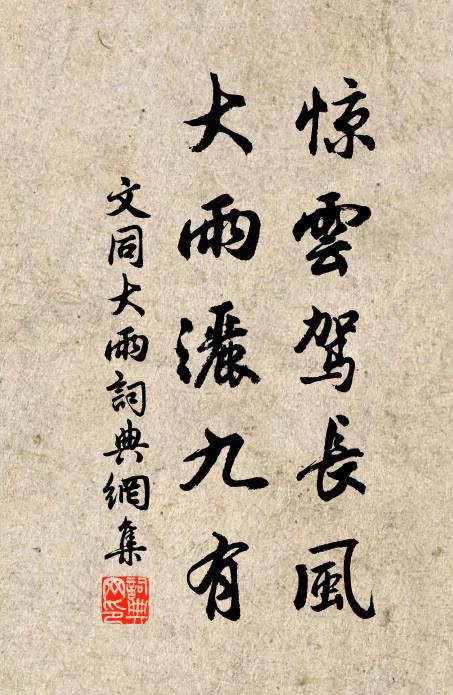 惊雲駕長風
大雨灑九有
文同大雨詞典網集
詞典網印